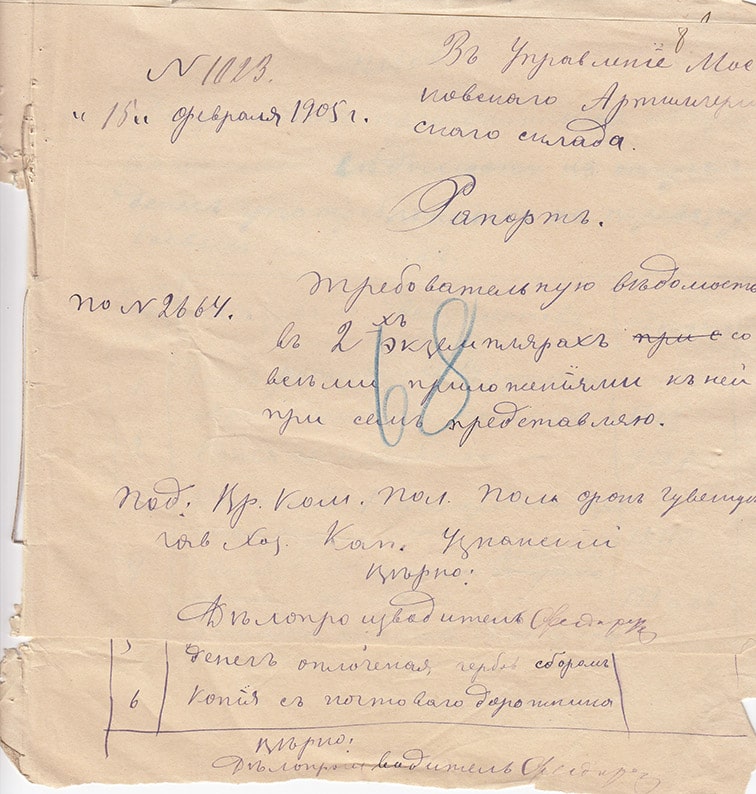 8
N 1023.
"15" февраля 1905 г.
Въ Управленіе Мос
ковскаго Артиллери
скаго склада.
Рапортъ.
по N 2664.
Требовательную вѣдомость
въ 2хъ экземплярахъ при с со
всѣми приложеніями къ ней
при семъ представляю.
68
Под: Вр. Ком. Пол. Полк. фонъ
Зав Хоз. Кап.
Вѣрно:
Дѣлопроизводитель
5 денегъ оплоченая гербов сборомъ
6 Копія съ почтоваго дорожника
Вѣрно:
Дѣлопроизводитель